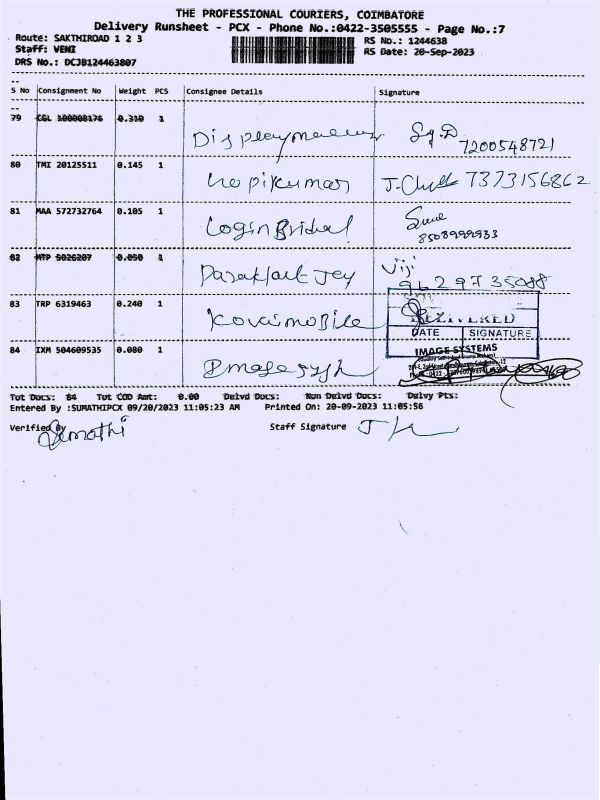 THE PROFESSIONAL COURIERS, COIMBATORE
Delivery Runsheet - PCX - Phone No.:0422-3505555 - Page No.:7
Route: SAKTHIROAD 1 2 3 RS No.: 1244638
Staff: VENI RS Date: 20-Sep-2023
DRS No.: DCJB124463807
S No Consignment No Weight PCS Consignee Details Signature
79 CGL 100008176 0.310 1
7200548721
80 TMI 20125511 0.145 1 Gopikumar 7373156862
81 MAA 572732764 0.105 1 Login Bridal
8508999933
82 MTP 5026207 0.050 1 Viji
9629735088
83 TRP 6319463 0.240 1 Kovaimobile
DELIVERED
DATE SIGNATURE
84 IXM 504609535 0.080 1 IMAGE SYSTEMS
Tot Docs: 84 Tot COD Amt: 0.00 Delvd Docs: Non Delvd Docs: Delvy Pts:
Entered By :SUMATHIPCX 09/20/2023 11:05:23 AM Printed On: 20-09-2023 11:05:56
Verified By Sumathi Staff Signature